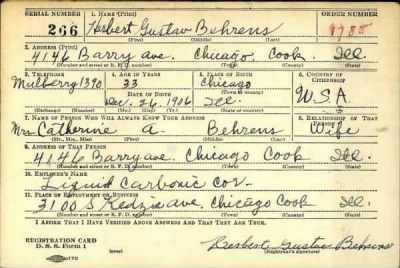 SERIAL NUMBER 1. NAME (Print) ORDER NUMBER
266 Herbert Gustav Behrens 1785
(First) (Middle) (Last)
2. ADDRESS (Print)
4146 Barry ave. Chicago Cook Ill.
(Number and street or R. F. D. number) (Town) (County) (State)
3. TELEPHONE 4. AGE IN YEARS 5. PLACE OF BIRTH 6. COUNTRY OF CITIZENSHIP
Mulberry 1390 33 Chicago
DATE OF BIRTH (Town or county)
Dec. 26 1906 Ill. U.S.A
(Exchange) (Number) (Mo.) (Day) (Yr.) (State or country)
7. NAME OF PERSON WHO WILL ALWAYS KNOW YOUR ADDRESS 8. RELATIONSHIP OF THAT PERSON
Mrs Catherine A. Behrens Wife
(Mr., Mrs., Miss) (First) (Middle) (Last)
9. ADDRESS OF THAT PERSON
4146 Barry ave. Chicago Cook Ill.
(Number and street or R. F. D. number) (Town) (County) (State)
10. EMPLOYER'S NAME
Liquid Carbonic Cor.
11. PLACE OF EMPLOYMENT OR BUSINESS
3100 S Kedzie ave. Chicago Cook Ill.
(Number and street or R. F. D. number) (Town) (County) (State)
I AFFIRM THAT I HAVE VERIFIED ABOVE ANSWERS AND THAT THEY ARE TRUE.
REGISTRATION CARD
D. S. S. Form 1 Herbert Gustav Behrens
(Registrant's signature)